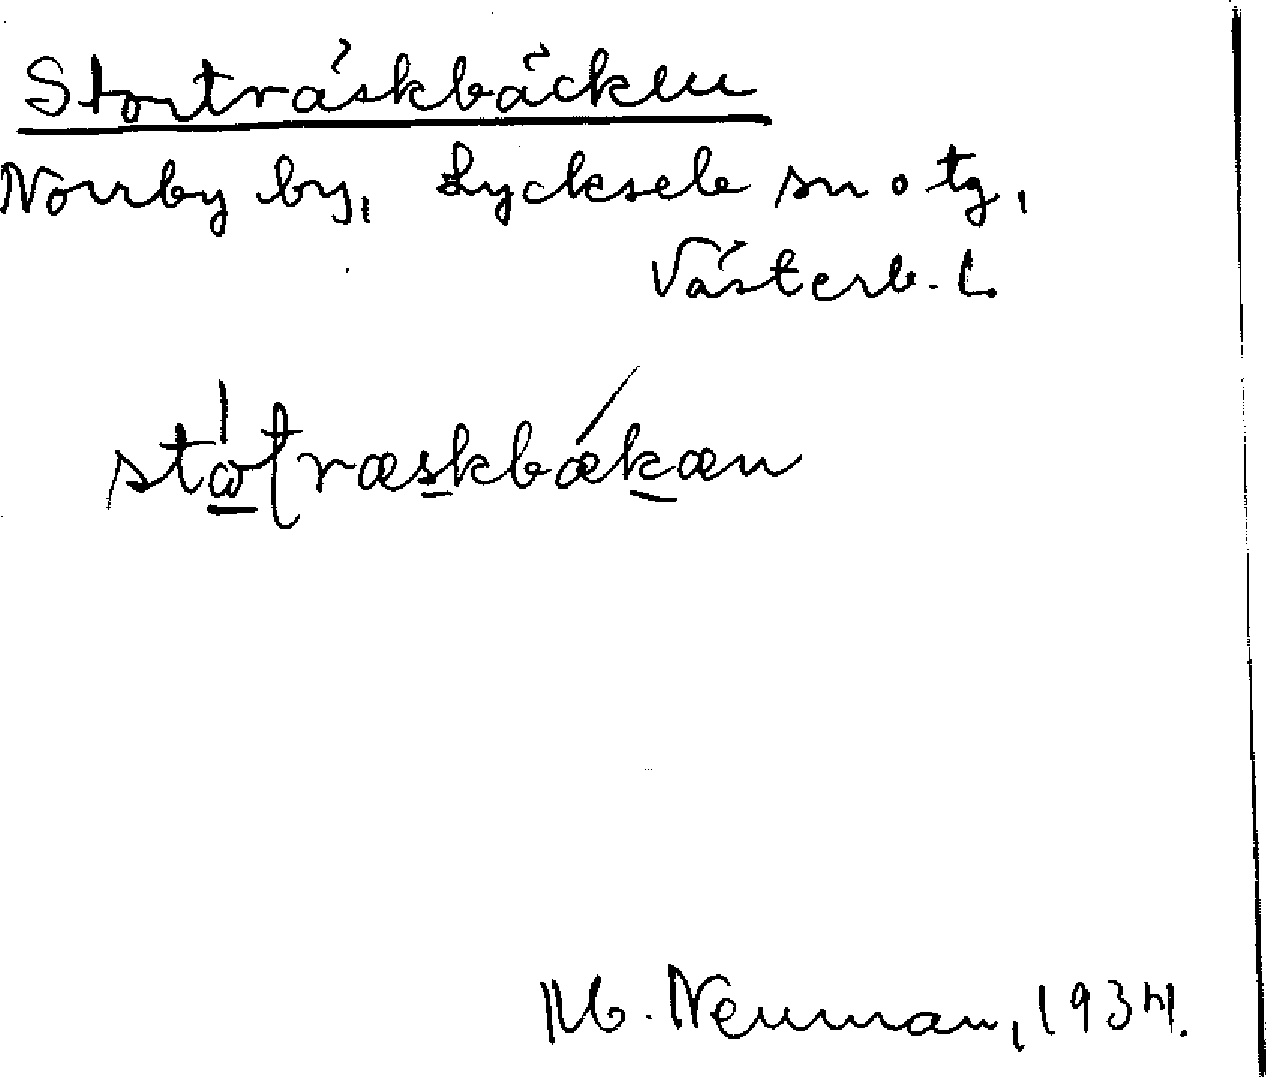 Storträskbäcken
Norrby by, Lycksele sn o tg,
Västerb. L.
stωʈræskbækæn
Neuman, 1934.